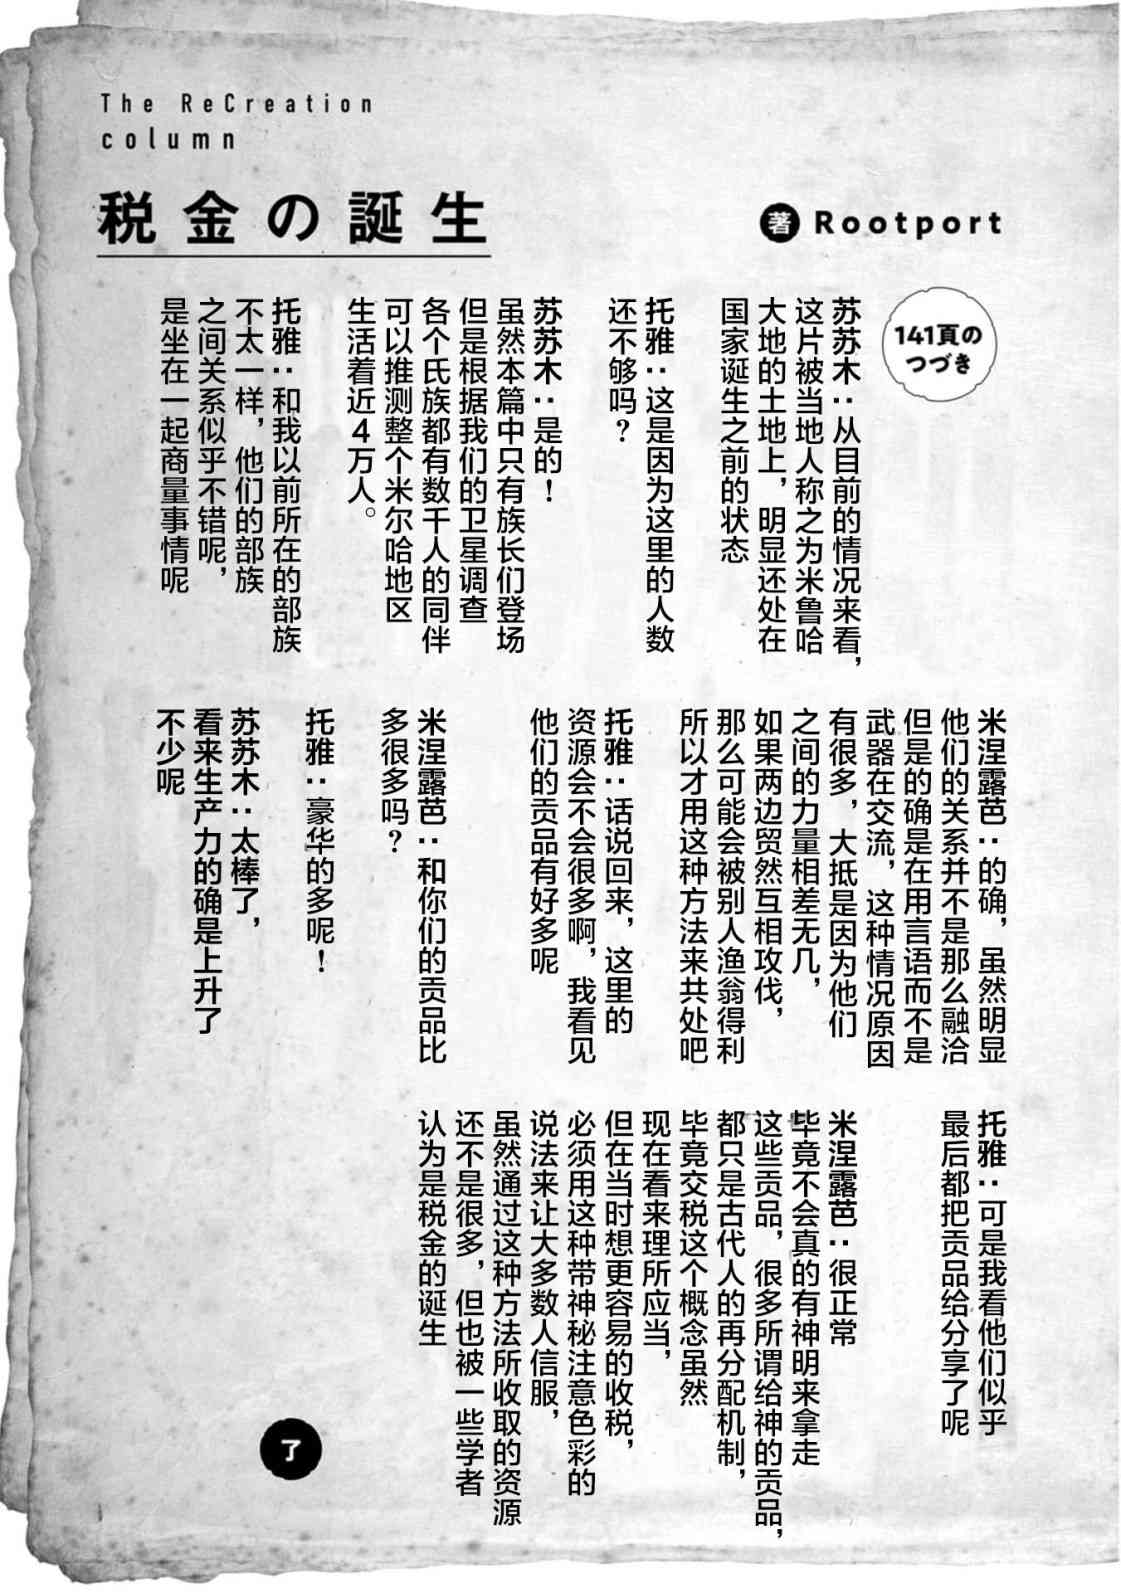 The ReCreation
column
税金の誕生
著 Rootport
141頁の
つづき
苏苏木：从目前的情况来看，
这片被当地人称之为米鲁哈
大地的土地上，明显还处在
国家诞生之前的状态
托雅：这是因为这里的人数
还不够吗？
苏苏木：是的！
虽然本篇中只有族长们登场
但是根据我们的卫星调查
各个氏族都有数千人的同伴
可以推测整个米尔哈地区
生活着近4万人。
托雅：和我以前所在的部族
不太一样，他们的部族
之间关系似乎不错呢，
是坐在一起商量事情呢
米涅露芭：的确，虽然明显
他们的关系并不是那么融洽
但是的确是在用言语而不是
武器在交流，这种情况原因
有很多，大抵是因为他们
之间的力量相差无几，
如果两边贸然互相攻伐，
那么可能会被别人渔翁得利
所以才用这种方法来共处吧
托雅：话说回来，这里的
资源会不会很多啊，我看见
他们的贡品有好多呢
米涅露芭：和你们的贡品比
多很多吗？
托雅：豪华的多呢！
苏苏木：太棒了，
看来生产力的确是上升了
不少呢
托雅：可是我看他们似乎
最后都把贡品给分享了呢
米涅露芭：很正常
毕竟不会真的有神明来拿走
这些贡品，很多所谓给神的贡品，
都只是古代人的再分配机制，
毕竟交税这个概念虽然
现在看来理所应当，
但在当时想更容易的收税，
必须用这种带神秘注意色彩的
说法来让大多数人信服，
虽然通过这种方法所收取的资源
还不是很多，但也被一些学者
认为是税金的诞生
了